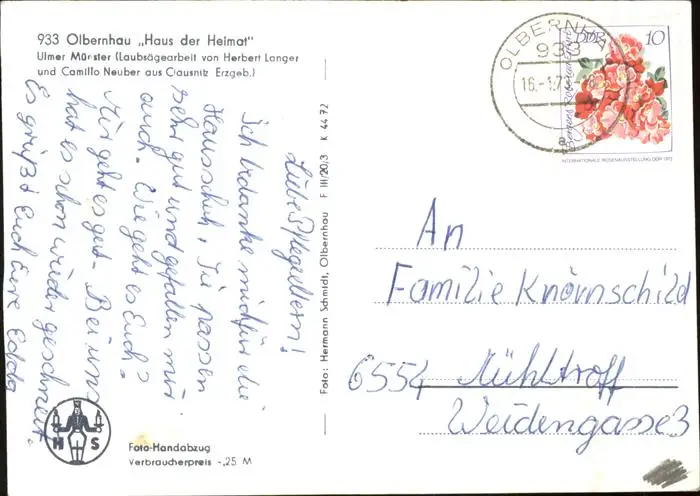 933 Olbernhau „Haus der Heimat"
Ulmer Münster (Laubsägearbeit von Herbert Langer
und Camillo Neuber aus Clausnitz Erzgeb.)
Liebe Pflegeeltern!
Ich bedanke mich für die
Hausschuh. Sie passen
sehr gut und gefallen mir
auch. Wie geht es Euch?
Mir geht es gut. Bei uns
hat es schon wieder geschneit.
Es grüßt Euch Eure Edda
H S
Foto-Handabzug
Verbraucherpreis -,25 M
Foto: Hermann Schmidt, Olbernhau F III/20/3 K 44 72
OLBERNHAU
933
16.-1.73
DDR 10
INTERNATIONALE ROSENAUSSTELLUNG DDR 1972
An
Familie Knörnschild
6554 Mühltroff
Weidengasse 3